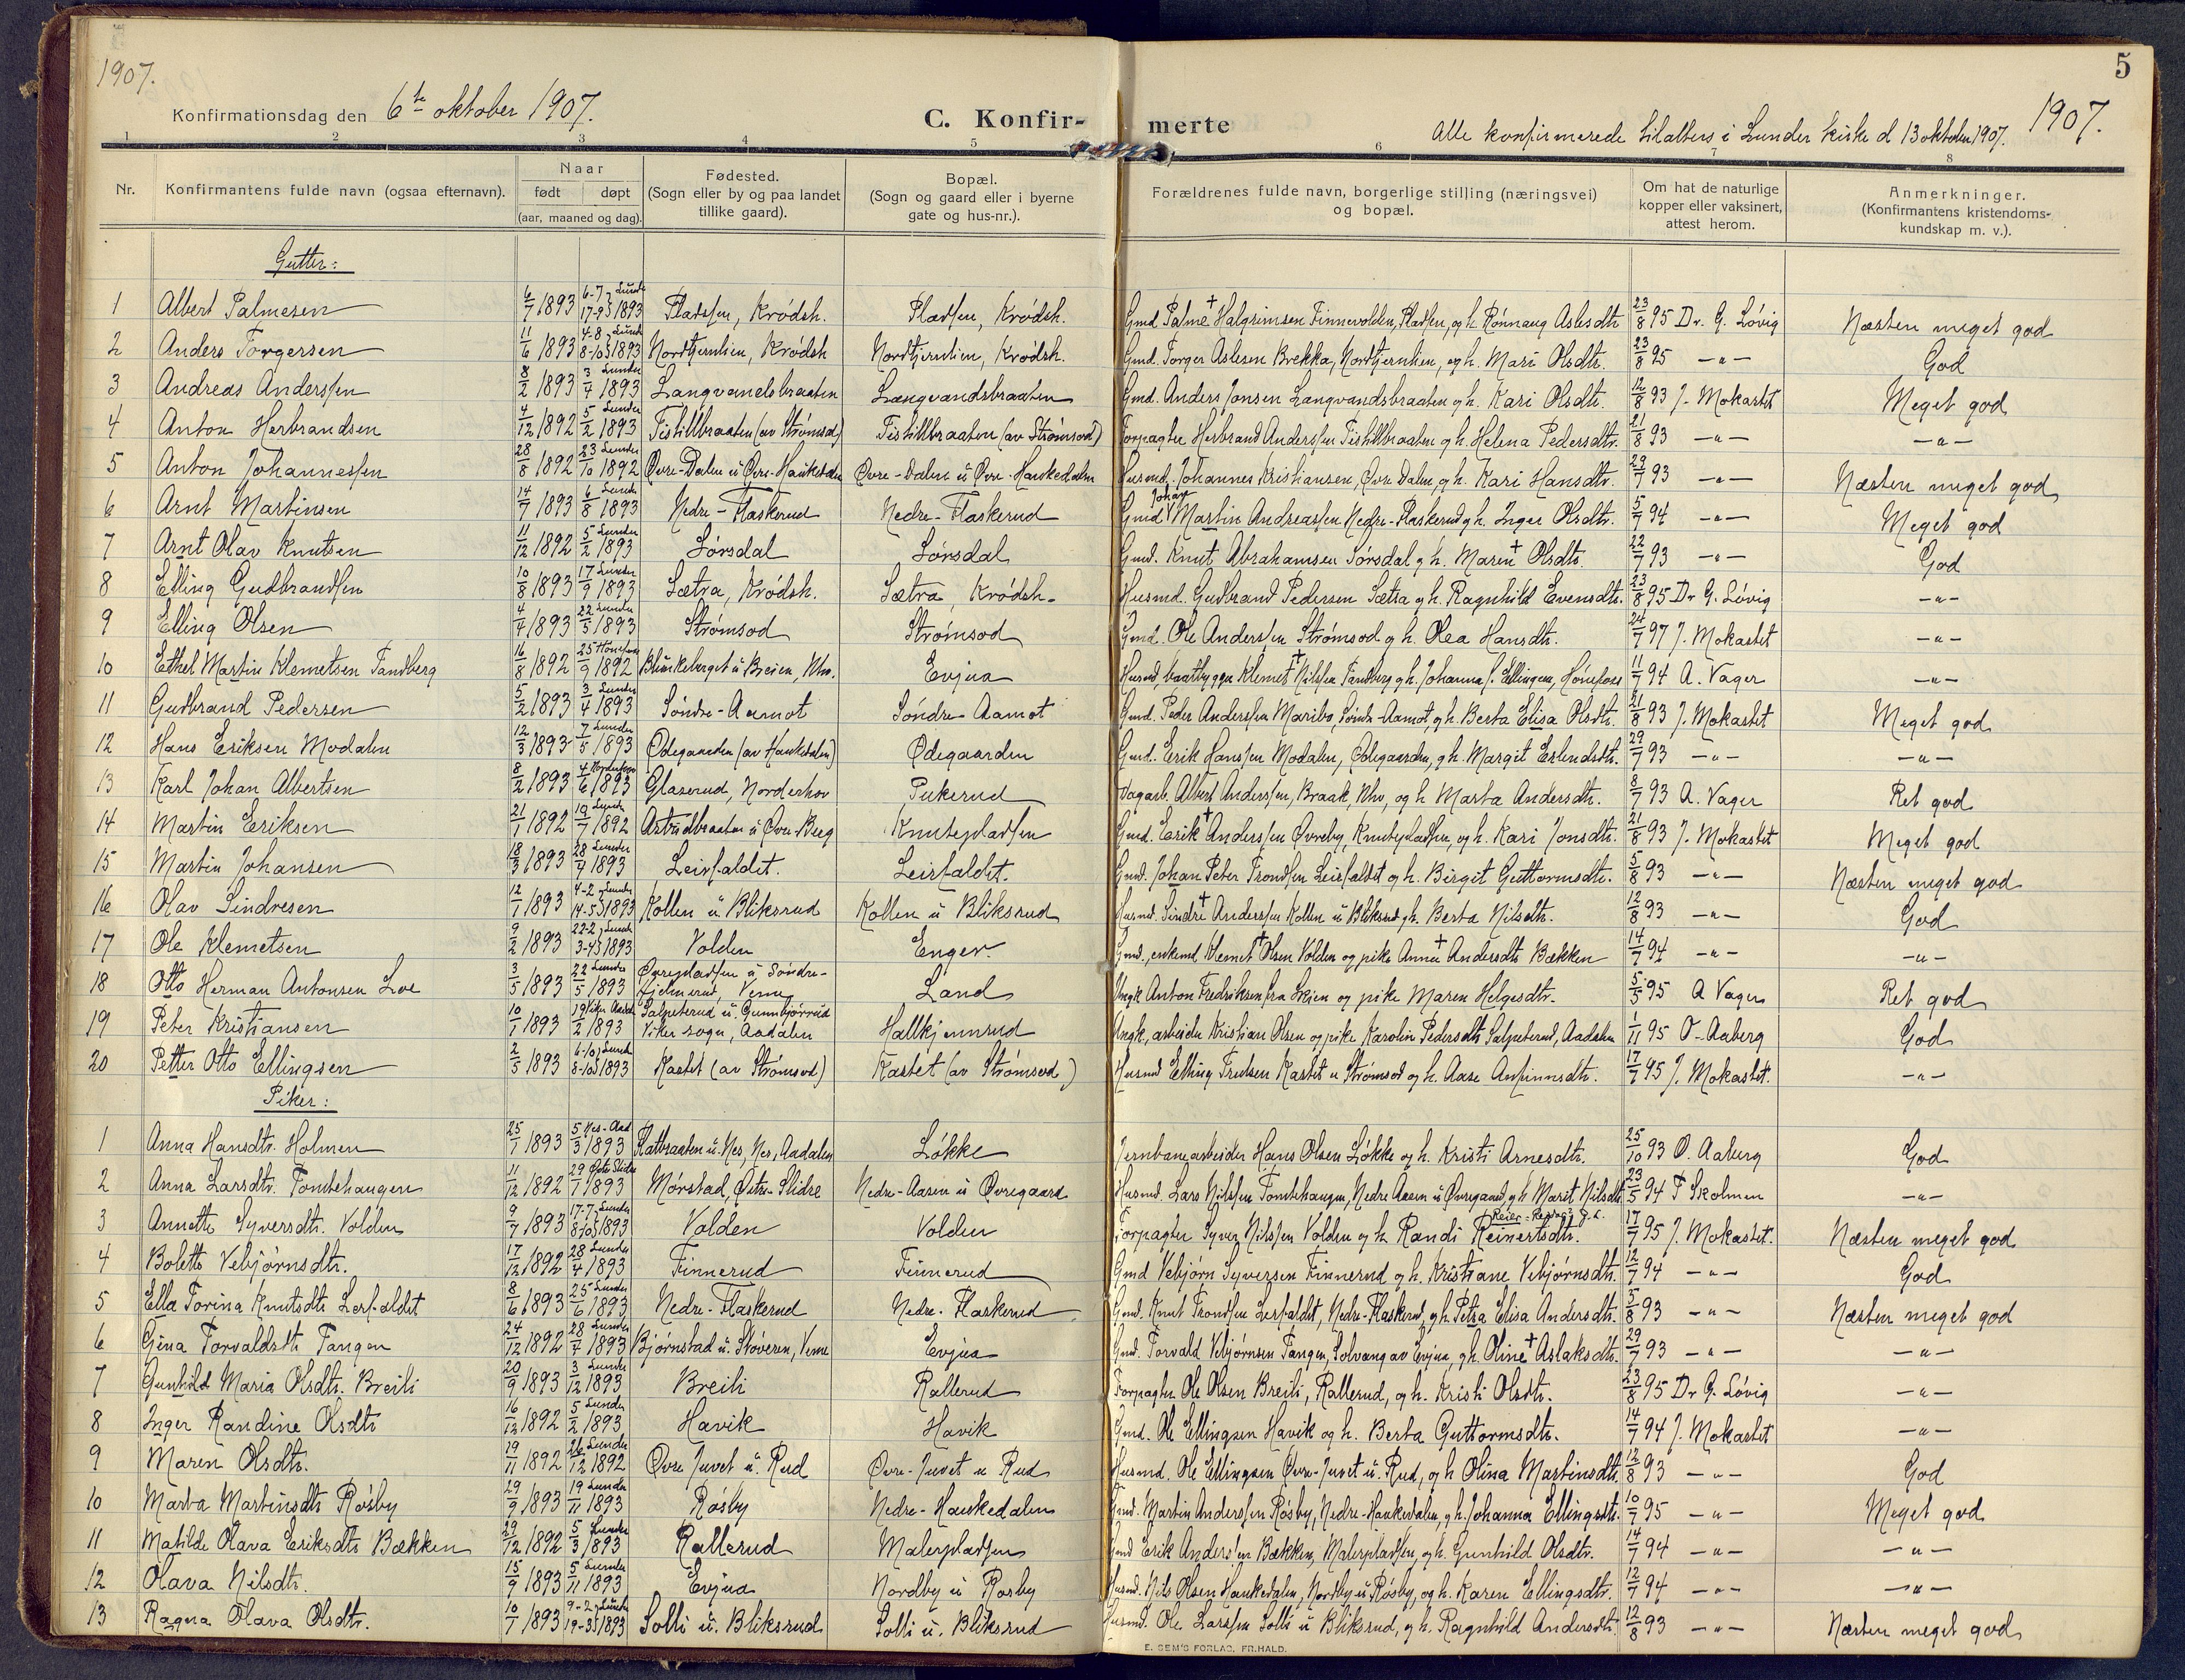 1907.
Konfirmationsdag den 6te oktober 1907.
C. Konfir- merte
Alle konfirmerede til alters i Lunder kirke d 13 oktober 1907.
1907.
5
1 2 3 4 5 6 7 8
Nr. Konfirmantens fulde navn (ogsaa efternavn). Naar født døpt (aar, maaned og dag). Fødested. (Sogn eller by og paa landet tillike gaard). Bopæl. (Sogn og gaard eller i byerne gate og hus-nr.). Forældrenes fulde navn, borgerlige stilling (næringsvei) og bopæl. Om hat de naturlige kopper eller vaksinert, attest herom. Anmerkninger. (Konfirmantens kristendoms-kundskap m. v.).
Gutter:
1 Albert Palmesen 6/7 1893 6-7 17-9 1893 Lunder Pladsen, Krødsh. Pladsen, Krødsh. Gmd Palme + Halgrimsen Finnevolden, Pladsen, og h. Rønnaug Aslesdtr 23/8 95 Dr. G. Løvig Næsten meget god
2 Anders Torgersen 11/6 1893 4-8 8-10 1893 Lunder Nordtjernlien, Krødsh Nordtjernlien, Krødsh. Gmd. Torger Aslesen Brekka, Nordtjernlien, og h. Mari Olsdtr. 23/8 95 -"- God
3 Andreas Anderssen 8/2 1893 3/4 1893 Lunder Langvandsbraaten Langvandsbraaten Gmd. Anders Jonsen Langvandsbraaten og h. Kari Olsdtr. 12/8 93 J. Mokastet Meget god
4 Anton Herbrandsen 4/12 1892 5/2 1893 Lunder Tistillbraaten (av Strømsod) Tistillbraaten (av Strømsod) Forpagter Herbrand Anderssen Tistillbraaten og h. Helena Pedersdtr. 21/8 93 -"- -"-
5 Anton Johannessen 28/8 1892 23/10 1892 Lunder Øvre-Dalen u Øvre-Haukedalen Øvre-Dalen u Øvre-Haukedalen Husmd. Johannes Kristiansen, Øvre Dalen, og h. Kari Hansdtr. 29/7 93 -"- Næsten meget god
6 Arnt Martinsen 14/7 1893 6/8 1893 Lunder Nedre-Flaskerud Nedre-Flaskerud Gmd Johan Martin Andreassen Nedre-Flaskerud og h. Inger Olsdtr. 5/7 94 -"- Meget god
7 Arnt Olav Knutsen 11/12 1892 5/2 1893 Lunder Sørsdal Sørsdal Gmd. Knut Abrahamsen Sørsdal og h. Maren + Olsdtr. 22/7 93 -"- God
8 Elling Gudbrandsen 10/8 1893 17/9 1893 Lunder Sætra, Krødsh. Sætra, Krødsh. Husmd. Gudbrand Pedersen Sætra og h. Ragnhild Evensdtr. 23/8 95 Dr G. Løvig -"-
9 Elling Olsen 4/4 1893 22/5 1893 Lunder Strømsod Strømsod Gmd. Ole Anderssen Strømsod og h. Olea Hansdtr. 24/7 97 J. Mokastet -"-
10 Ethel Martin Klemetsen Tandberg 16/8 1892 25/9 1892 Hønefos Blinkeberget u Breien, Nhv. Evjua Husmd, baatbygger Klemet + Nilssen Tandberg og h. Johanna f. Ellingsen, Hønefoss 11/7 94 A. Vager -"-
11 Gudbrand Pedersen 5/2 1893 3/4 1893 Lunder Søndre-Aamot Søndre Aamot Gmd. Peder Anderssen Maribo, Søndre-Aamot, og h. Berta Elisa Olsdtr. 21/8 93 J. Mokastet Meget god
12 Hans Eriksen Modalen 12/3 1893 7/5 1893 Lunder Ødegaarden (av Haukedalen) Ødegaarden Gmd. Erik Hanssen Modalen, Ødegaarden, og h. Margit Erlendsdtr. 29/7 93 -"- -"-
13 Karl Johan Albertsen 8/2 1893 4/6 1893 Norderhov Glaserud, Norderhov Pukerud Dagarb. Albert Anderssen, Braak, Nhv, og h Marta Andersdtr. 8/7 93 A. Vager Ret god
14 Martin Eriksen 21/1 1892 19/7 1892 Lunder Astrudbraaten u Øvre-Berg Knuteplassen Gmd. Erik + Anderssen Øvreby, Knuteplassen, og h. Kari Jonsdtr. 21/8 93 J. Mokastet Meget god
15 Martin Johansen 18/3 1893 28/4 1893 Lunder Leirfaldet. Leirfaldet. Gmd. Johan Peter Trondsen Leirfaldet og h. Birgit Guttormsdtr. 5/8 93 -"- Næsten meget god
16 Olav Sindresen 12/1 1893 4-2 14-5 1893 Lunder Kollen u Bliksrud Kollen u Bliksrud Husmd. Sindre + Anderssen Kollen u Bliksrud og h. Berta Nilsdtr. 12/8 93 -"- God
17 Ole Klemetsen 9/2 1893 22-2 3-4 1893 Lunder Volden Enger. Gmd., enkemd Klemet + Olsen Volden og pike Anne + Andersdtr Bækken 14/7 94 -"- -"-
18 Otto Herman Antonsen Loe 3/5 1893 22/5 1893 Lunder Øvrepladsen u Søndre-Hjelmerud, Veme Land Ungk Anton Fredriksen fra Skien og pike Maren Helgesdtr. 5/5 95 A Vager Ret god
19 Peter Kristiansen 10/1 1893 19/2 1893 Viker Aadal Salpeterud u. Gunnbjørrud Viker sogn, Aadalen Hallkjennsrud Ungk, arbeider Kristian Olsen og pike Karolin Pedersdtr Salpeterud, Aadalen 1/11 95 O. Aaberg God
20 Petter Otto Ellingsen 2/5 1893 6-10 8-10 1893 Lunder Kastet (av Strømsod) Kastet (av Strømsod) Husmd Elling Trulsen Kastet u Strømsod og h. Aase Anfinnsdtr. 17/7 95 J. Mokastet. -"-
Piker:
1 Anna Hansdtr. Holmen 25/1 1893 5/3 1893 Nes-Aad Flatbraaten u. Nes, Nes, Aadalen Løkke Jernbanearbeider Hans Olsen Løkke og h. Kristi Arnesdtr. 25/10 93 O. Aaberg God
2 Anna Larsdtr. Tombehaugen 11/12 1892 29/1 1893 Østre Slidre Mørstad, Østre Slidre Nedre-Aasen u Øvregaard Husmd. Lars Nilssen Tombehaugen, Nedre Aasen u Øvregaard, og h Marit Nilsdtr 23/5 94 T Skolmen -"-
3 Annette Syversdtr. Volden 9/7 1893 17-7 8-10 1893 Lunder Volden Volden Forpagter Syver Nilssen Volden og h Randi Reinertsdtr. 17/7 95 J. Mokastet. Næsten meget god
4 Bolette Vebjørnsdtr. 17/12 1892 28/4 1893 Lunder Finnerud Finnerud Gmd Vebjørn Syversen Finnerud og h. Kristiane Vebjørnsdtr. 12/7 94 -"- God
5 Ella Torina Knutsdtr Lerfaldet 8/6 1893 25/6 1893 Lunder Nedre-Flaskerud Nedre-Flaskerud Gmd. Knut Trondsen Lerfaldet, Nedre-Flaskerud, og h. Petra Elisa Andersdtr. 5/8 93 -"- Næsten meget god
6 Gina Torvaldsdtr Tangen 24/12 1892 28/4 1893 Lunder Bjørnstad u. Støveren, Veme Evjua Gmd. Torvald Vebjørnsen Tangen, Solvang av Evjua, og h. Oline + Aslaksdtr. 29/7 93 -"- -"-
7 Gunhild Maria Olsdtr. Breili 20/9 1893 3/12 1893 Lunder Breili Rallerud Forpagter Ole Olsen Breili, Rallerud, og h. Kristi Olsdtr. 23/8 95 Dr G. Løvig -"-
8 Inger Randine Olsdtr 16/12 1892 5/2 1893 Lunder Havik Havik Gmd. Ole Ellingsen Havik og h. Berta Guttormsdtr. 14/7 94 J. Mokastet -"-
9 Maren Olsdtr. 19/11 1892 26/12 1892 Lunder Øvre Juvet u. Rud Øvre-Juvet u Rud Husmd. Ole Ellingsen Øvre-Juvet u. Rud, og h Olina Martinsdtr. 12/8 93 -"- God
10 Marta Martinsdtr Røsby 29/9 1893 19/11 1893 Lunder Røsby Nedre-Haukedalen Gmd. Martin Anderssen Røsby, Nedre-Haukedalen, og h. Johanna Ellingsdtr. 10/7 95 -"- Meget god
11 Matilde Olava Eriksdtr Bækken 29/12 1892 5/3 1893 Lunder Rallerud Malerpladsen Gmd Erik Anderssen Bækken, Malerpladsen, og h. Gunhild Olsdtr. 14/7 94 -"- -"-
12 Olava Nilsdtr. 15/9 1893 5/11 1893 Lunder Evjua Nordby u Røsby Husmd. Nils Olsen Haukedalen, Nordby u Røsby, og h. Karen Ellingsdtr. 12/7 94 -"- -"-
13 Ragna Olava Olsdtr. 10/7 1893 9-2 19-3 1893 Lunder Solli u. Bliksrud Solli u. Bliksrud Husmd. Ole Larssen Solli u Bliksrud, og h. Ragnhild Andersdtr. 12/8 93 -"- Næsten meget god
E. SEM'S FORLAG, FR.HALD.